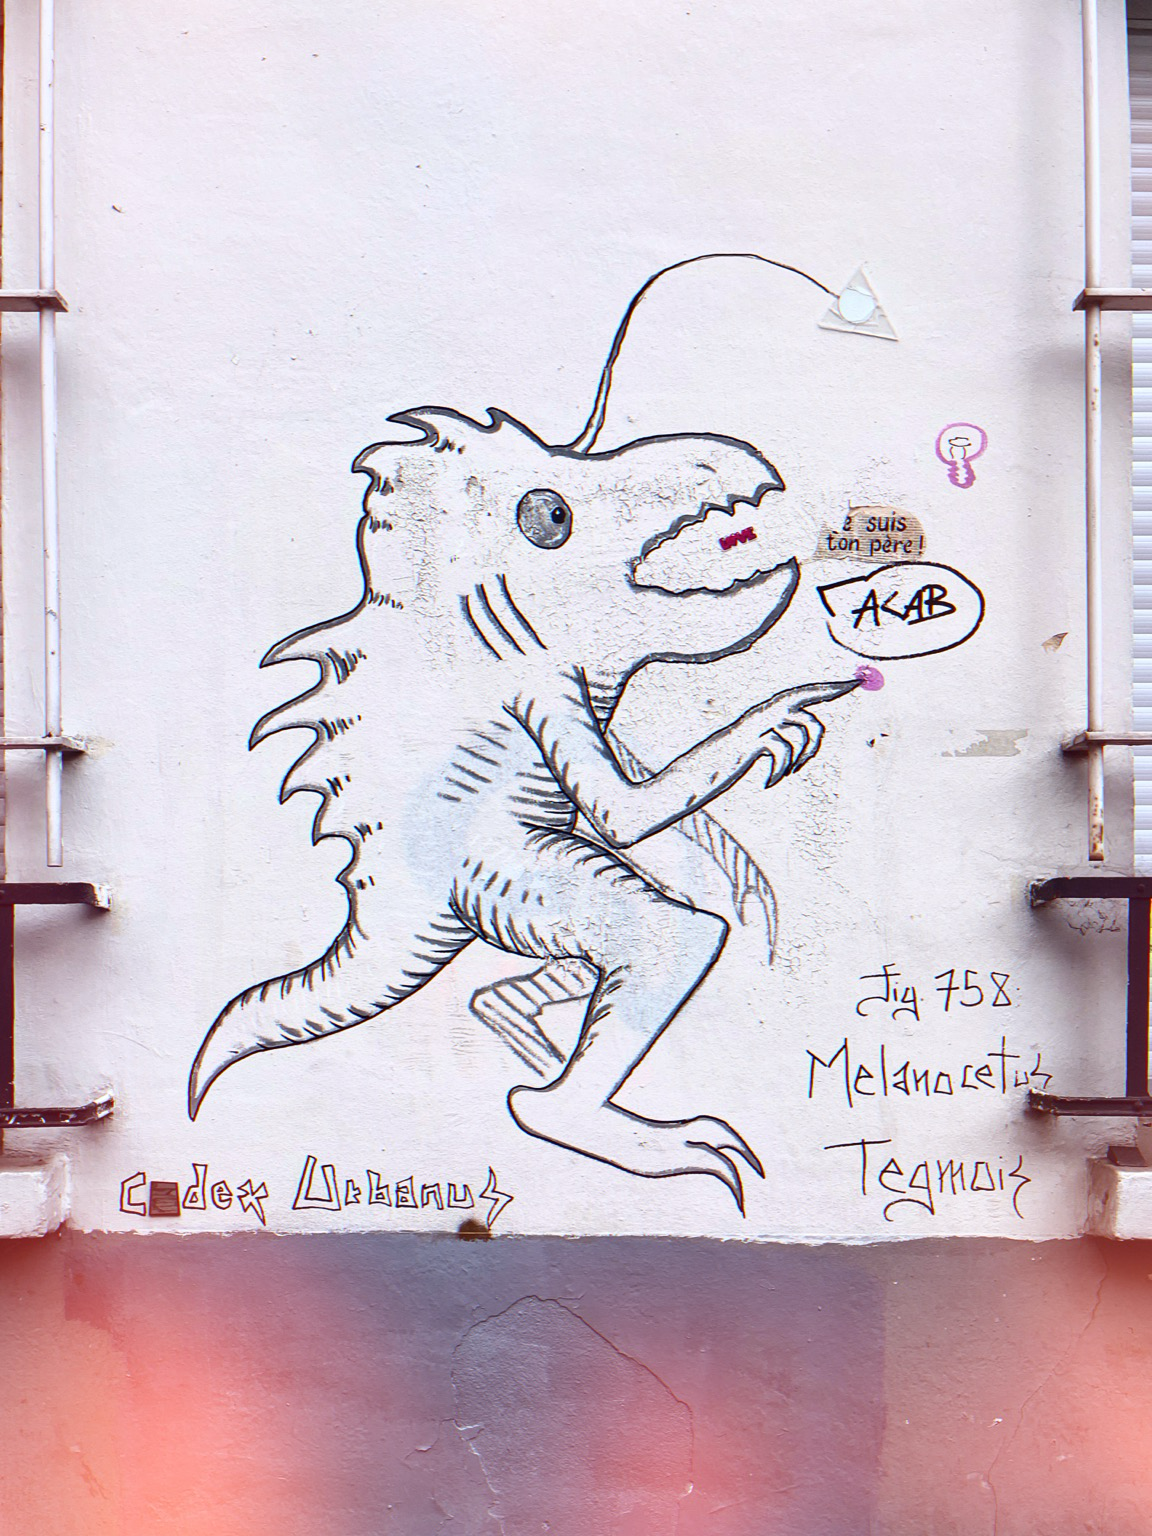 e suis
ton père!
ACAB
Fig. 758.
Melanocetus
Tegmois
Codex Urbanus